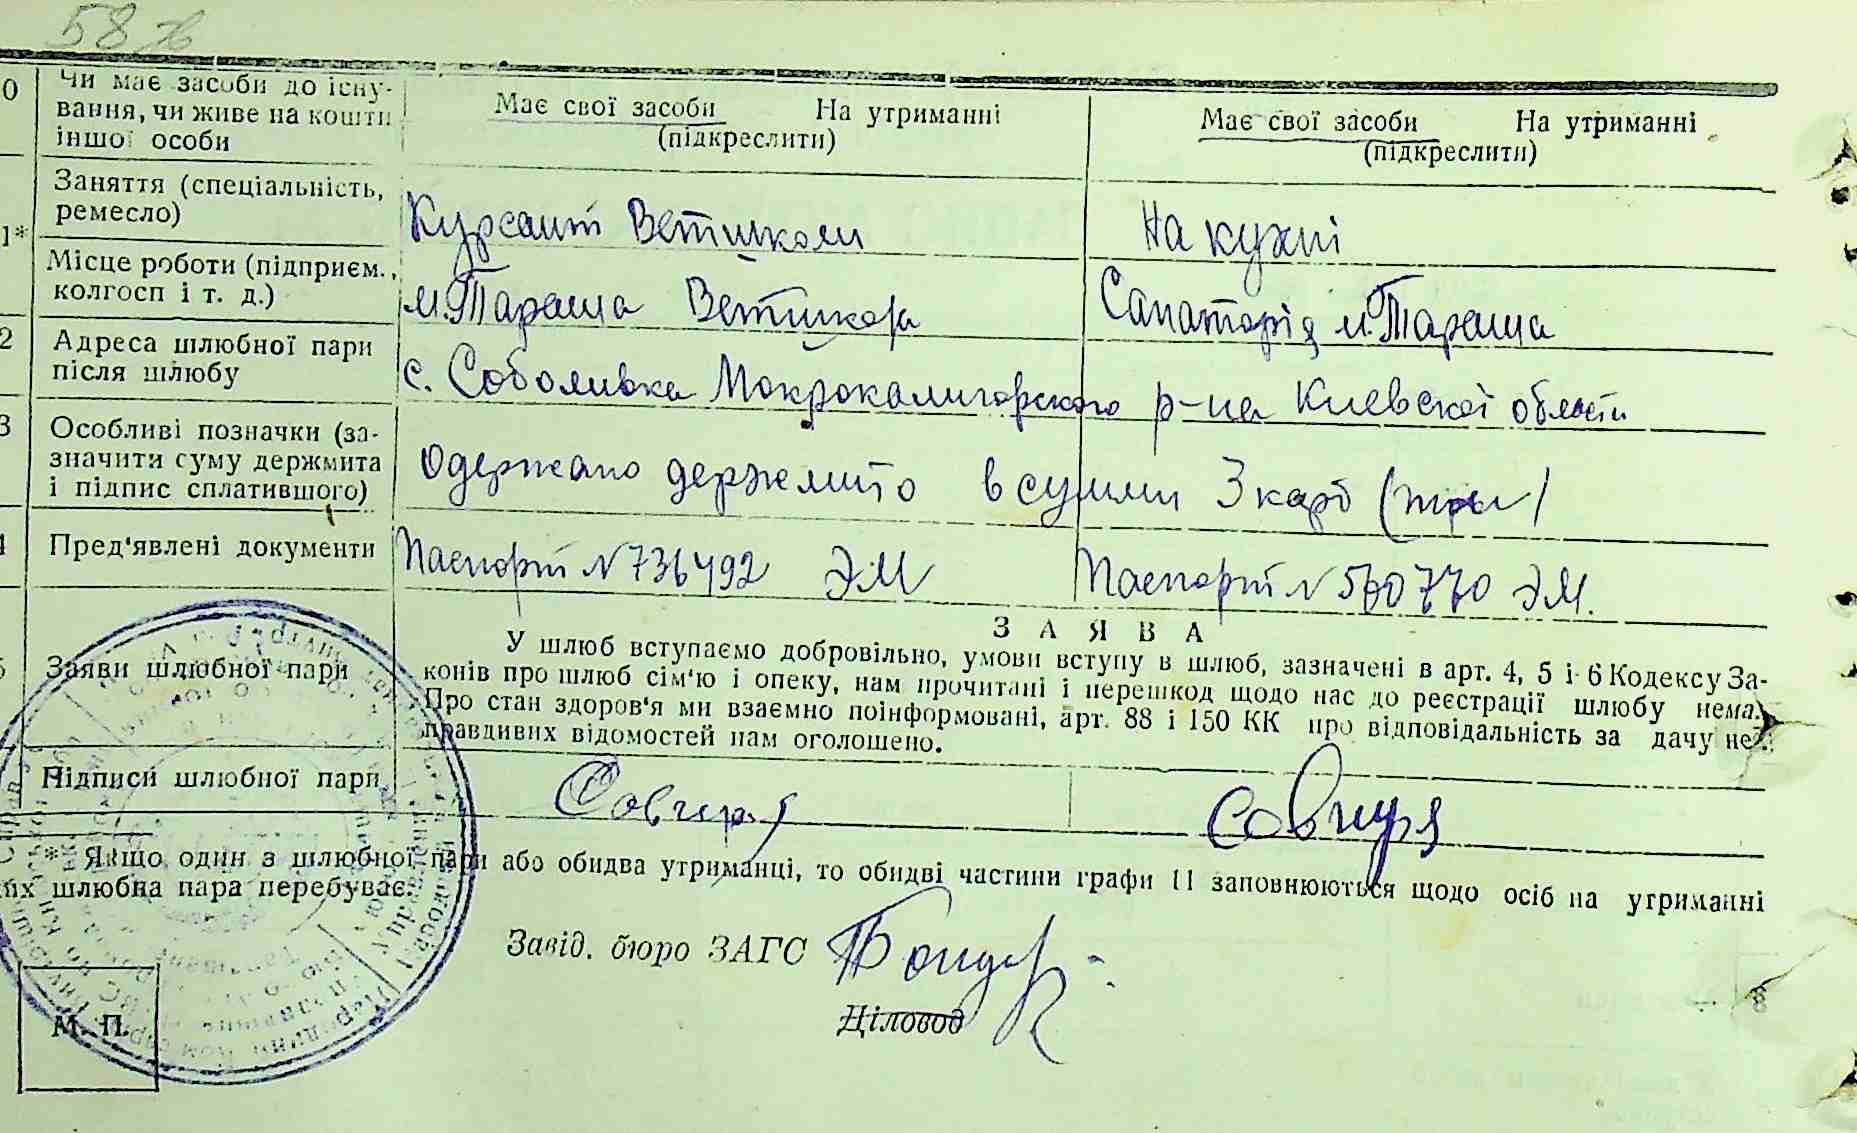 58
0 Чи має засоби до існу-
вання, чи живе на кошти
іншої особи
Має свої засоби На утриманні
(підкреслити)
Має свої засоби На утриманні
(підкреслити)
1* Заняття (спеціальність,
ремесло)
Курсант Ветшколи
На кухні
Місце роботи (підприєм.,
колгосп і т. д.)
м. Тараща Ветшкора
Санаторія м. Тараща
2 Адреса шлюбної пари
після шлюбу
с. Соболивка Мокрокалигорского р-на Киевскої области
3 Особливі позначки (за-
значити суму держмита
і підпис сплатившого)
Одержано держмито в сумми 3 карб (тры)
4 Пред'явлені документи
Паспорт N 736492 ЭМ
Паспорт N 560770 ЭМ.
5 Заяви шлюбної пари
ЗАЯВА
У шлюб вступаємо добровільно, умови вступу в шлюб, зазначені в арт. 4, 5 і 6 Кодексу За-
конів про шлюб сім'ю і опеку, нам прочитані і перешкод щодо нас до реєстрації шлюбу нема.
Про стан здоров'я ми взаємно поінформовані, арт. 88 і 150 КК про відповідальність за дачу не-
правдивих відомостей нам оголошено.
Підписи шлюбної пари
Совгиря
* Якщо один з шлюбної пари або обидва утриманці, то обидві частини графи 11 заповнюються щодо осіб на утриманні
яких шлюбна пара перебуває.
Завід. бюро ЗАГС
Діловод
М. П.